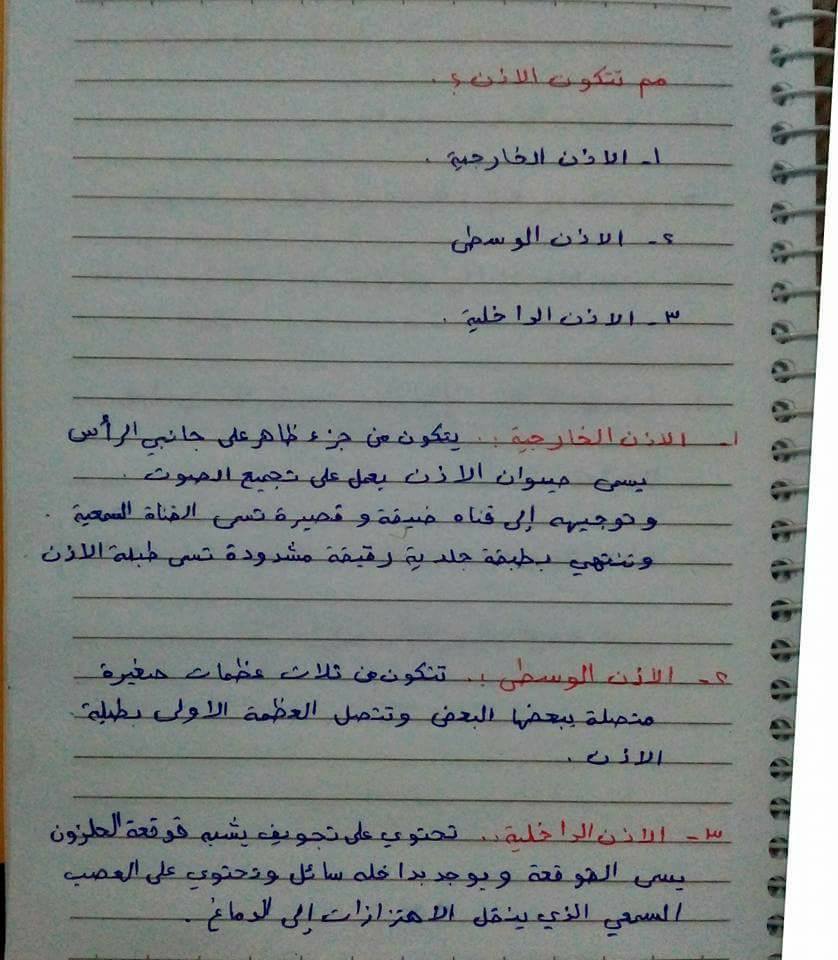 مم تتكون الاذن ؟.
١- الاذن الخارجية .
٢- الاذن الوسطى
٣- الاذن الداخلية .
١- الاذن الخارجية .. يتكون من جزء ظاهر على جانبي الرأس
يسمى صيوان الاذن يعمل على تجميع الصوت .
وتوجيهه إلى قناه ضيقة و قصيرة تسمى القناة السمعية .
وتنتهي بطبقة جلدية رقيقة مشدودة تسمى طبلة الاذن
٢- الاذن الوسطى .. تتكون من ثلاث عظمات صغيرة
متصلة ببعضها البعض وتتصل العظمة الاولى بطبلة
الاذن .
٣- الاذن الداخلية .. تحتوي على تجويف يشبه قوقعة الحلزون
يسمى القوقعة ويوجد بداخله سائل وتحتوي على العصب
السمعي الذي ينقل الاهتزازات إلى الدماغ .